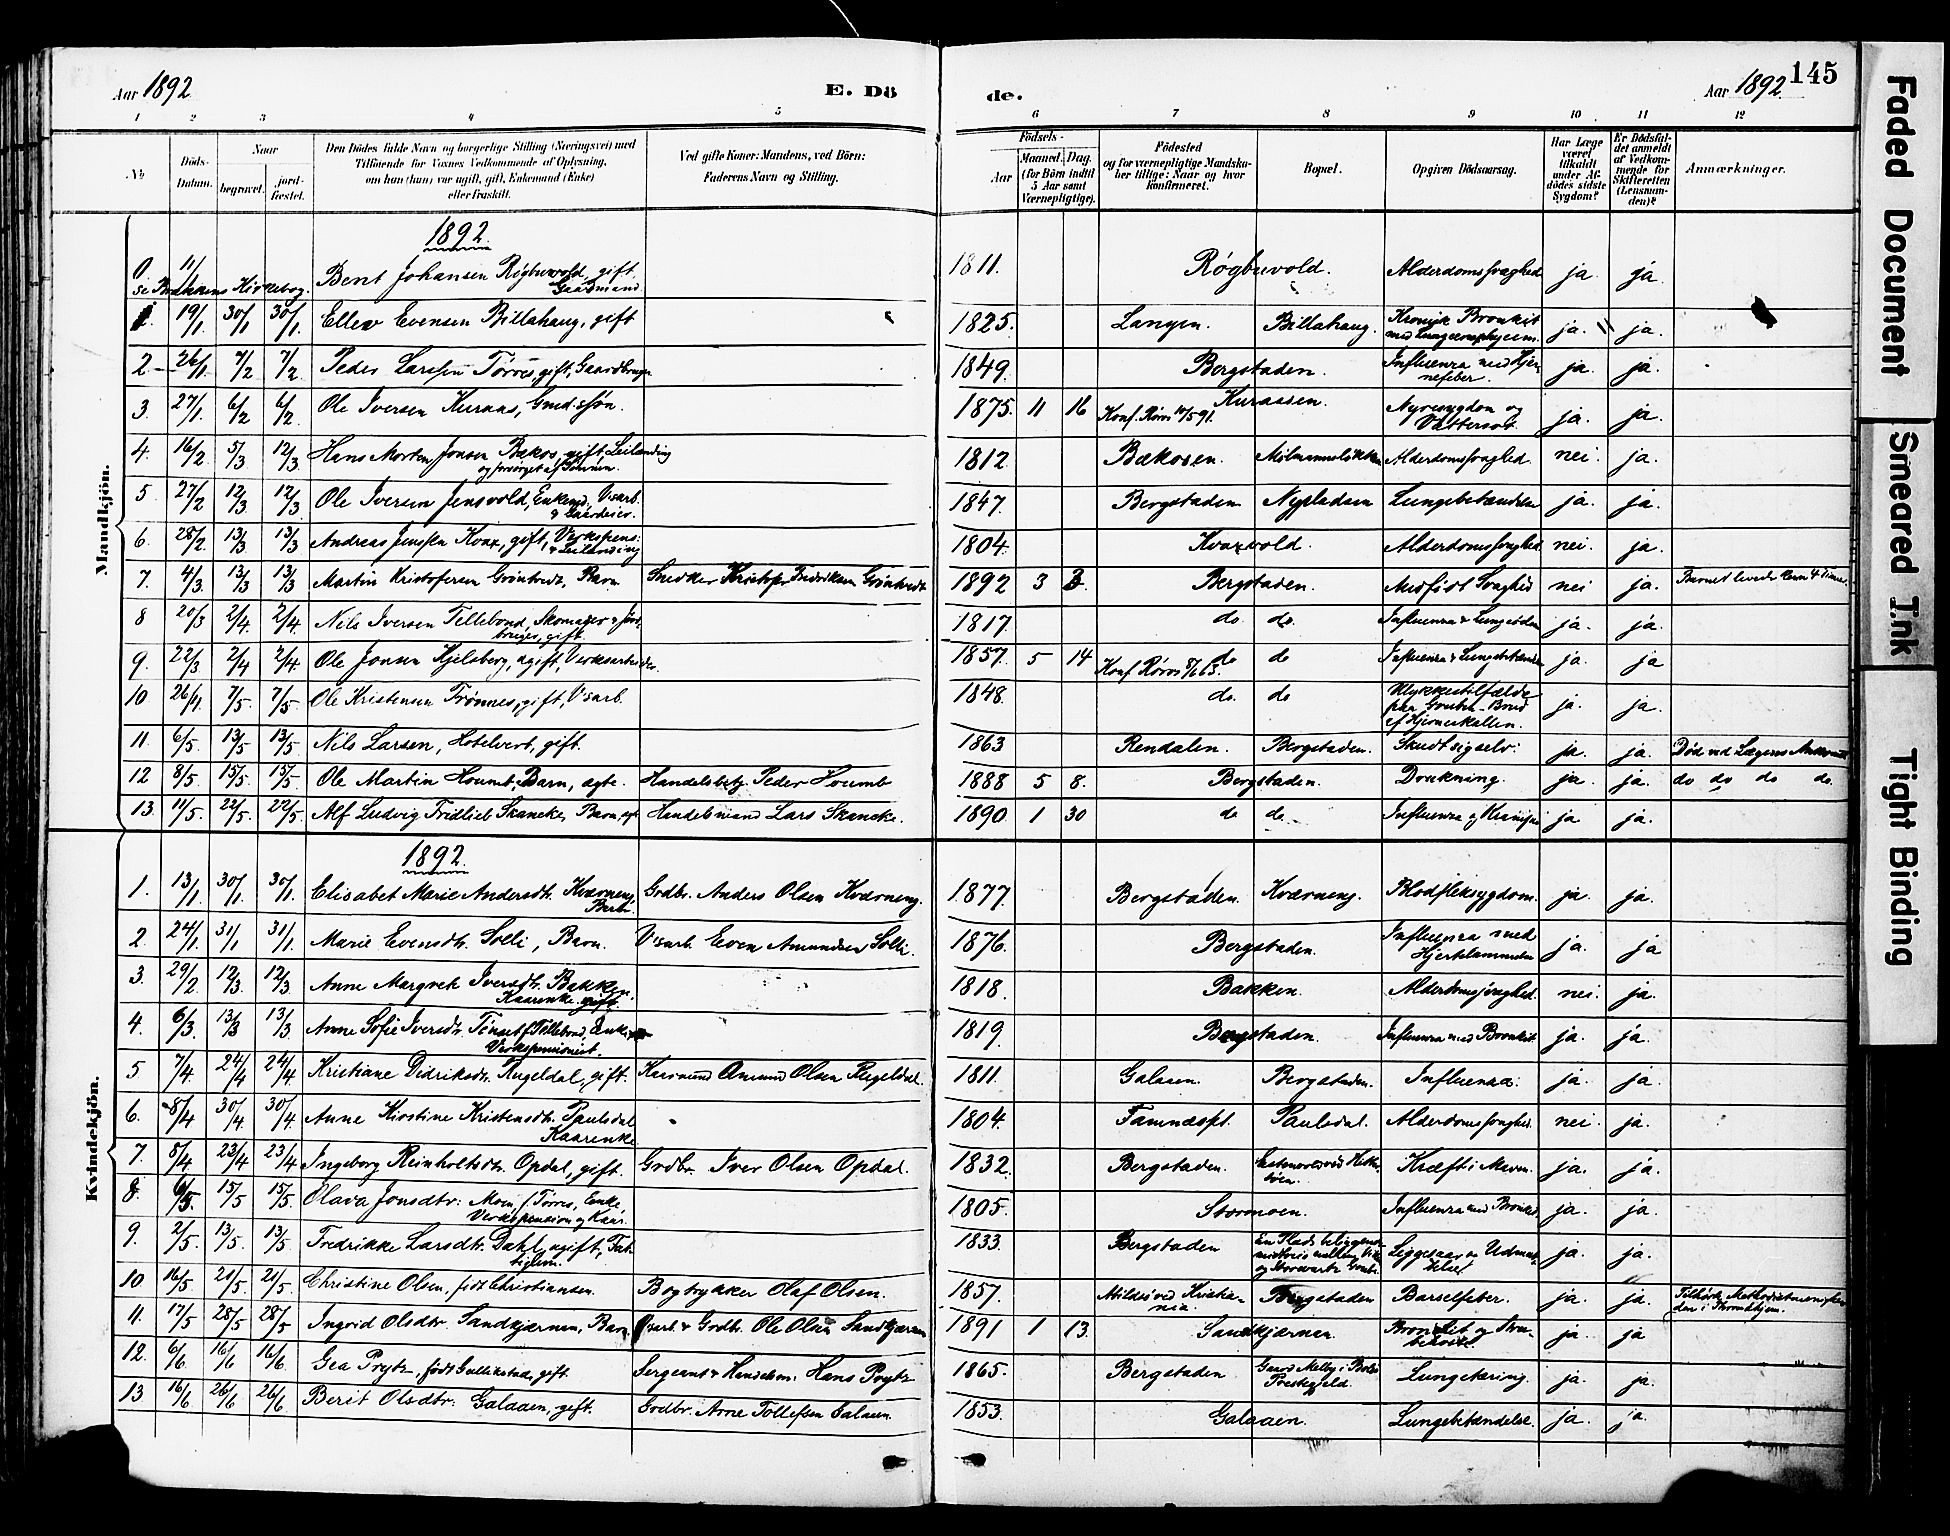 Aar 1892
E. Dö
de.
Aar 1892
145
1 2 3 4 5 6 7 8 9 10 11 12
No
Döds-Datum.
Naar
begravet.
jord-fæstet.
Den Dödes fulde Navn og borgerlige Stilling (Næringsvei) med
Tilföiende for Voxnes Vedkommende af Oplysning,
om han (hun) var ugift, gift, Enkemand (Enke)
eller fraskilt.
Ved gifte Koner: Mandens, ved Börn:
Faderens Navn og Stilling.
Födsels-
Aar
Maaned. Dag.
(for Börn indtil
5 Aar samt
Værnepligtige).
Födested
og for værnepligtige Mandska-
ber tillige: Naar og hvor
konfirmeret.
Bopæl.
Opgiven Dödsaarsag.
Har Læge
været
tilkaldt
under Af-
dödes sidste
Sygdom?
Er Dödsfal-
det anmeldt
af Vedkom-
mende for
Skifteretten
(Lensman-
den)?
Anmærkninger.
Mandkjön.
1892.
0. 11/1 Bernt Johansen Røgbuvold, gift. Gaardmand. 1811. Røgbuvold. Alderdomssvaghed ja. ja.
se Brekkens Kirkebog.
1. 19/1 30/1 30/1 Ellev Evensen Billahaug, gift 1825. Langen. Billahaug. Kronisk Bronkit med Lungeemphysem. ja. ja.
2 26/1 7/2 7/2 Peder Larssen Tørres, gift, Gaardbruger 1849. Bergstaden. Influenza med Hjernefeber. ja. ja.
3. 27/1 6/2 6/2 Ole Iversen Kuraas, Grndssøn. 1875. 11 16 Konf. Røros 17/5 91. Kuraasen. Nyresygdom og Vattersot. ja. ja.
4. 16/2 5/3 12/3 Hans Morten Jonsen Bækos, gift, Leilending og forsørget af Sønnen. 1812 Bækosen. Mølmannsløkken Alderdomssvaghed. nei. ja.
5 27/2 12/3 12/3 Ole Iversen Jensvold, Enkemd, V.arb. & Gaardeier. 1847. Bergstaden Nypladsen Lungebetændelse ja. ja.
6. 28/2 13/3 13/3 Andreas Jenssen Kvar, gift, Verkspens: & Leilending 1804. Kvarvold. Alderdomssvaghed nei. ja.
7. 4/3 13/3 13/3 Martin Kristofersen Grindtvedt, Barn Snedker Kristofer Fredriksen Grindtvedt 1892 3 3. Bergstaden. Medfødt Svaghed nei ja. Barnet levede kun 4 Timer.
8 20/3 2/4. 2/4. Nils Iversen Tellebond, Skomager & Jordbruger, gift. 1817. do. do. Influenza & Lungebetæn ja. ja.
9. 22/3 2/4 2/4 Ole Jonsen Hjelsberg, ugift, Verksarbeider. 1857. 5 14 Konf. Røros do do Influenza & Lungebetænd ja. ja
10 26/4 7/5 7/5 Ole Kristensen Trønnes, gift, V.arb. 1848. do. do Ulykkestilfælde paa Gruben - Brud af Hjerneskallen. ja. ja.
11 6/5. 13/5 13/5 Nils Larsen, Hotelvert, gift. 1863 Rendalen. Bergstaden. Skudt sig selv. ja. ja. Død ved Lægens Ankomst
12 8/5 15/5 15/5 Ole Martin Houmb, Barn, ægte. Handelsbetj. Peder Houmb 1888 5 8. Bergstaden. Drukning. ja ja. do do do do.
13. 11/5. 22/5 22/5 Alf Ludvig Fridtlieb Skancke, Barn, egt. Handelsmand Lars Skancke. 1890 1 30 do do Influenza og Krampe ja ja.
Kvindekjön.
1892.
1. 13/1 30/1 30/1 Elisabet Marie Andersdtr. Kværneng, Barn Grdbr. Anders Olsen Kværneng. 1877. Bergstaden. Kværneng. Blodfleksygdom. ja. ja.
2. 24/1. 31/1 31/1. Marie Evensdtr. Solli, Barn. V.arb. Even Amundsen Solli. 1876. Bergstaden. Influenza med Hjertelammelse ja. ja
3 29/2 12/3. 12/3 Anne Margrete Iversdtr. Bakken. Kaarenke. gift. 1818. Bakken. Alderdomssvaghed. nei. ja.
4. 6/3 13/3 13/3 Anne Sofie Iversdtr. Tønset f. Tellebond, Enke, Verkspensionist. 1819. Bergstaden. Influenza med Bronkit ja. ja.
5 7/4 24/4 24/4 Kristiane Didriksdtr. Rugeldal, gift. Kusmand Amund Olsen Rugeldal. 1811. Galaaen. Bergstaden. Influenza. ja. ja.
6. 8/4 30/4. 30/4. Anne Kirstine Kristensdtr. Paulsdal Kaarenke 1804. Fæmundspt. Paulsdal. Alderdomssvaghed. nei. ja.
7. 8/4 23/4 23/4 Ingeborg Reinholtsdtr. Opdal, gift. Grdbr. Iver Olsen Opdal. 1832. Bergstaden. Kræft i Maven ja. ja.
8 6/5. 15/5 15/5 Olava Jonsdtr: Moen, f. Tørres, Enke, Verkspension og Kaar. 1805. Stormoen. Influenza med Bronkit ja. ja.
9. 2/5 13/5. 13/5 Fredrikke Larsdtr. Dahl, ugift, Fattiglem. 1833 Bergstaden Liggesaar og Udmattelse ja. ja.
10 16/5 21/5 21/5 Christine Olsen, født Christiansen. Bogtrykker Olaf Olsen. 1857. ved Kristiania. Bergstaden Barselfeber. ja. ja. Tilhørte Methodistmenigheden i Trondhjem.
11 17/5 28/5 28/5 Ingrid Olsdtr. Sandkjærnen, Barn V.arb. & Grdbr. Ole Olsen Sandkjærnen 1891 1 13. Sandkjærnen Bronkit og Strubehoste. ja. ja
12. 6/6 16/6 16/6 Gea Prytz, født Gullikstad, gift. Sergeant & Handelsm: Hans Prytz 1865. Bergstaden Gaard Melby i Prestegjeld Lungetæring. ja. ja.
13 16/6 26/6 26/6 Berit Olsdtr. Galaaen, gift. Grdbr. Arne Tollefsen Galaaen. 1853. Galaaen. Lungebetændelse. ja. ja.
Faded Document
Smeared Ink
Tight Binding